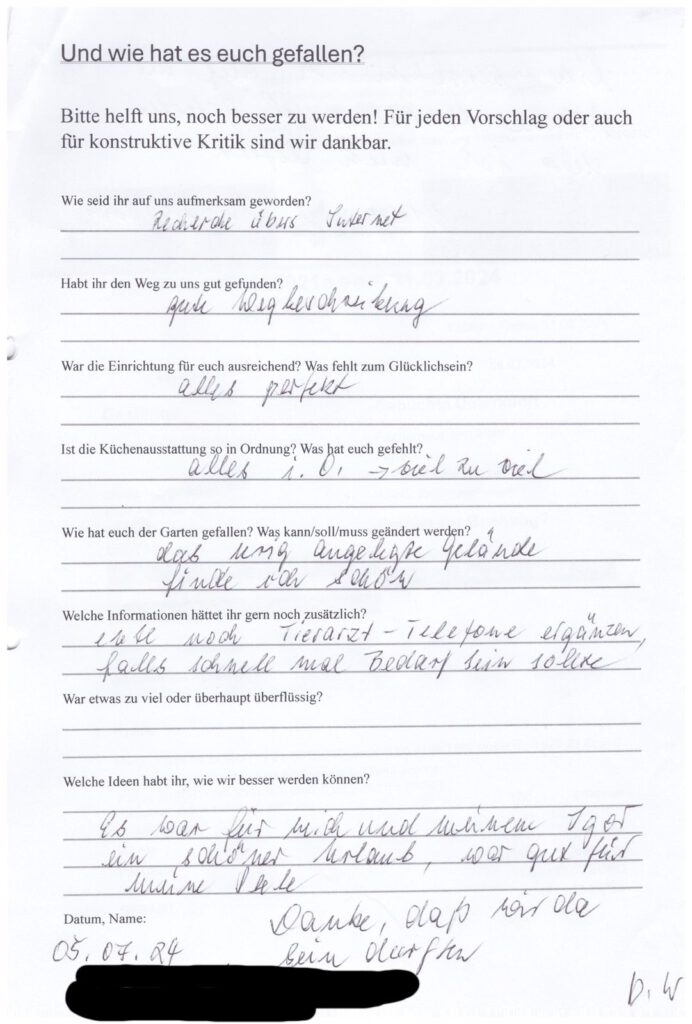 Und wie hat es euch gefallen?
Bitte helft uns, noch besser zu werden! Für jeden Vorschlag oder auch
für konstruktive Kritik sind wir dankbar.
Wie seid ihr auf uns aufmerksam geworden?
Recherche übers Internet
Habt ihr den Weg zu uns gut gefunden?
gute Wegbeschreibung
War die Einrichtung für euch ausreichend? Was fehlt zum Glücklichsein?
alles perfekt
Ist die Küchenausstattung so in Ordnung? Was hat euch gefehlt?
alles i. O. → viel zu viel
Wie hat euch der Garten gefallen? Was kann/soll/muss geändert werden?
das urig angelegte Gelände
finde ich schön
Welche Informationen hättet ihr gern noch zusätzlich?
evtl noch Tierarzt-Telefone ergänzen,
falls schnell mal Bedarf sein sollte
War etwas zu viel oder überhaupt überflüssig?
Welche Ideen habt ihr, wie wir besser werden können?
Es war für mich und meinem Igor
ein schöner Urlaub, war gut für
meine Seele
Datum, Name:
Danke, daß wir da
05.07.24 sein durften
D. W